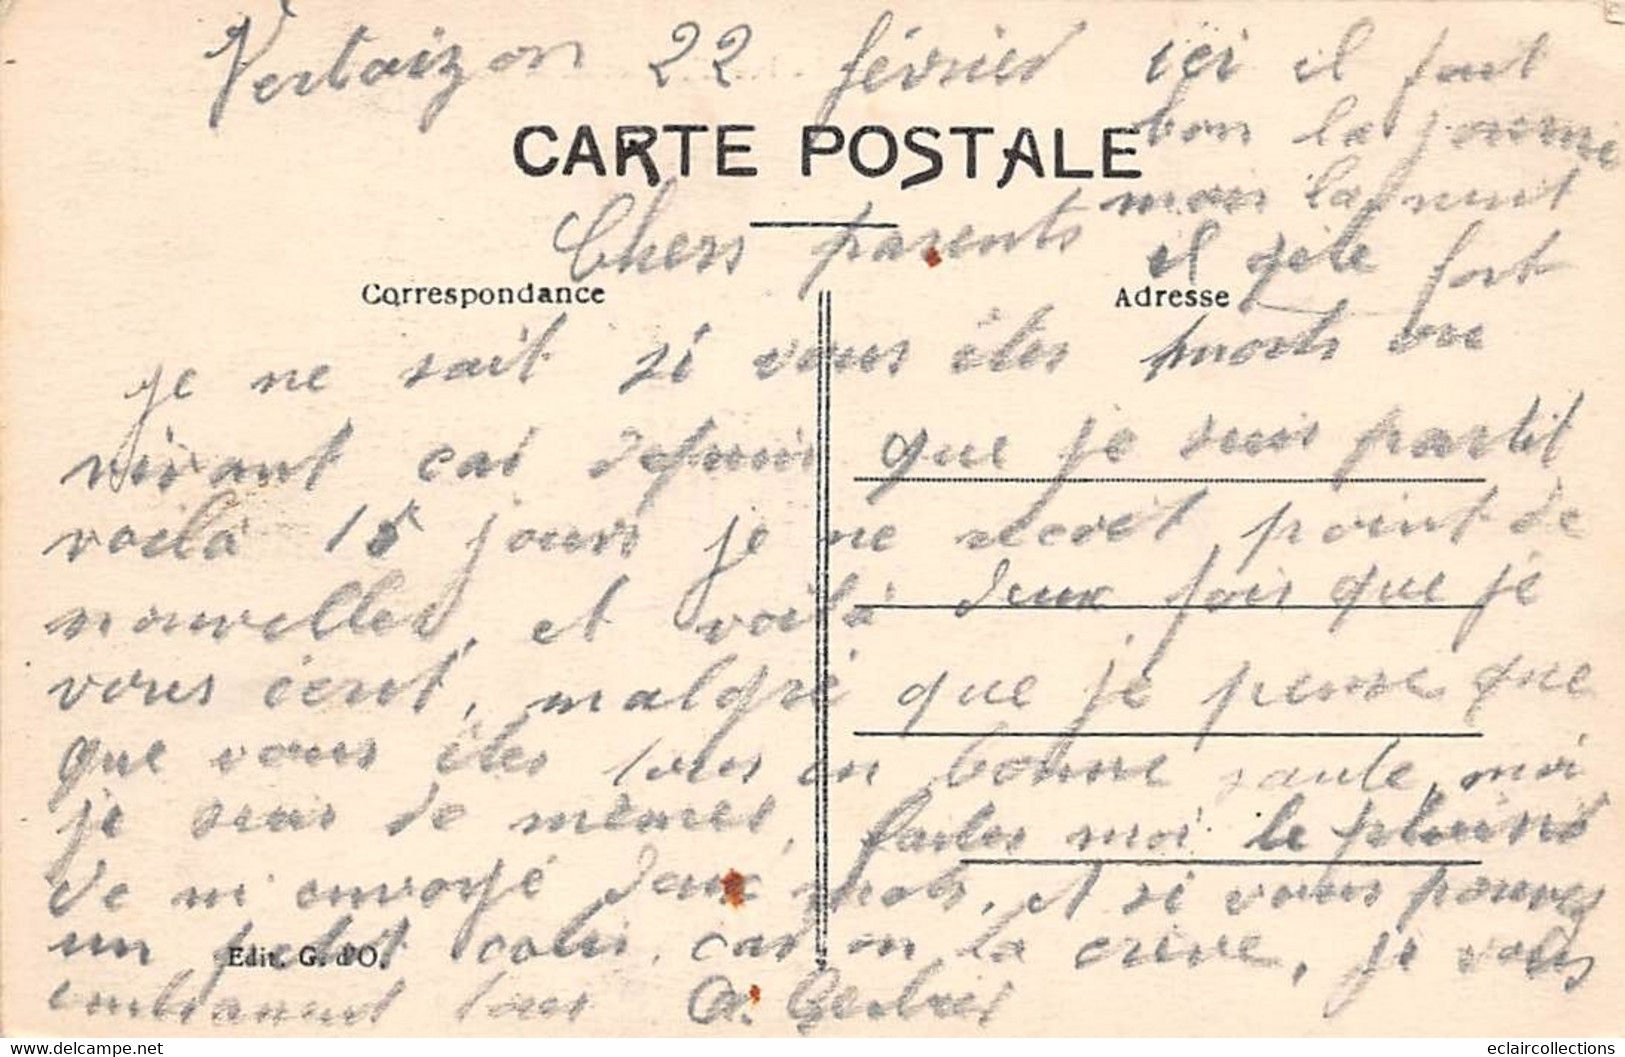 Vertaizon 22 février
ici il fait
bon la journé
mais la nuit
il gèle fort
CARTE POSTALE
Chers parents
Correspondance
Adresse
je ne sait si vous êtes morts ou
vivant car depuis que je suis partit
voilà 15 jours je ne recoit point de
nouvelles, et voilà deux fois que je
vous écrit, malgré que je pense que
que vous êtes tous en bonne sante, moi
je suis de mêmes, faites moi le plaisir
de m'envoyé deux mots, et si vous pouvez
un petit colis, car on la crève, je vous
Edit. G. d'O.
embrassent tous A.
www.delcampe.net
eclaircollections